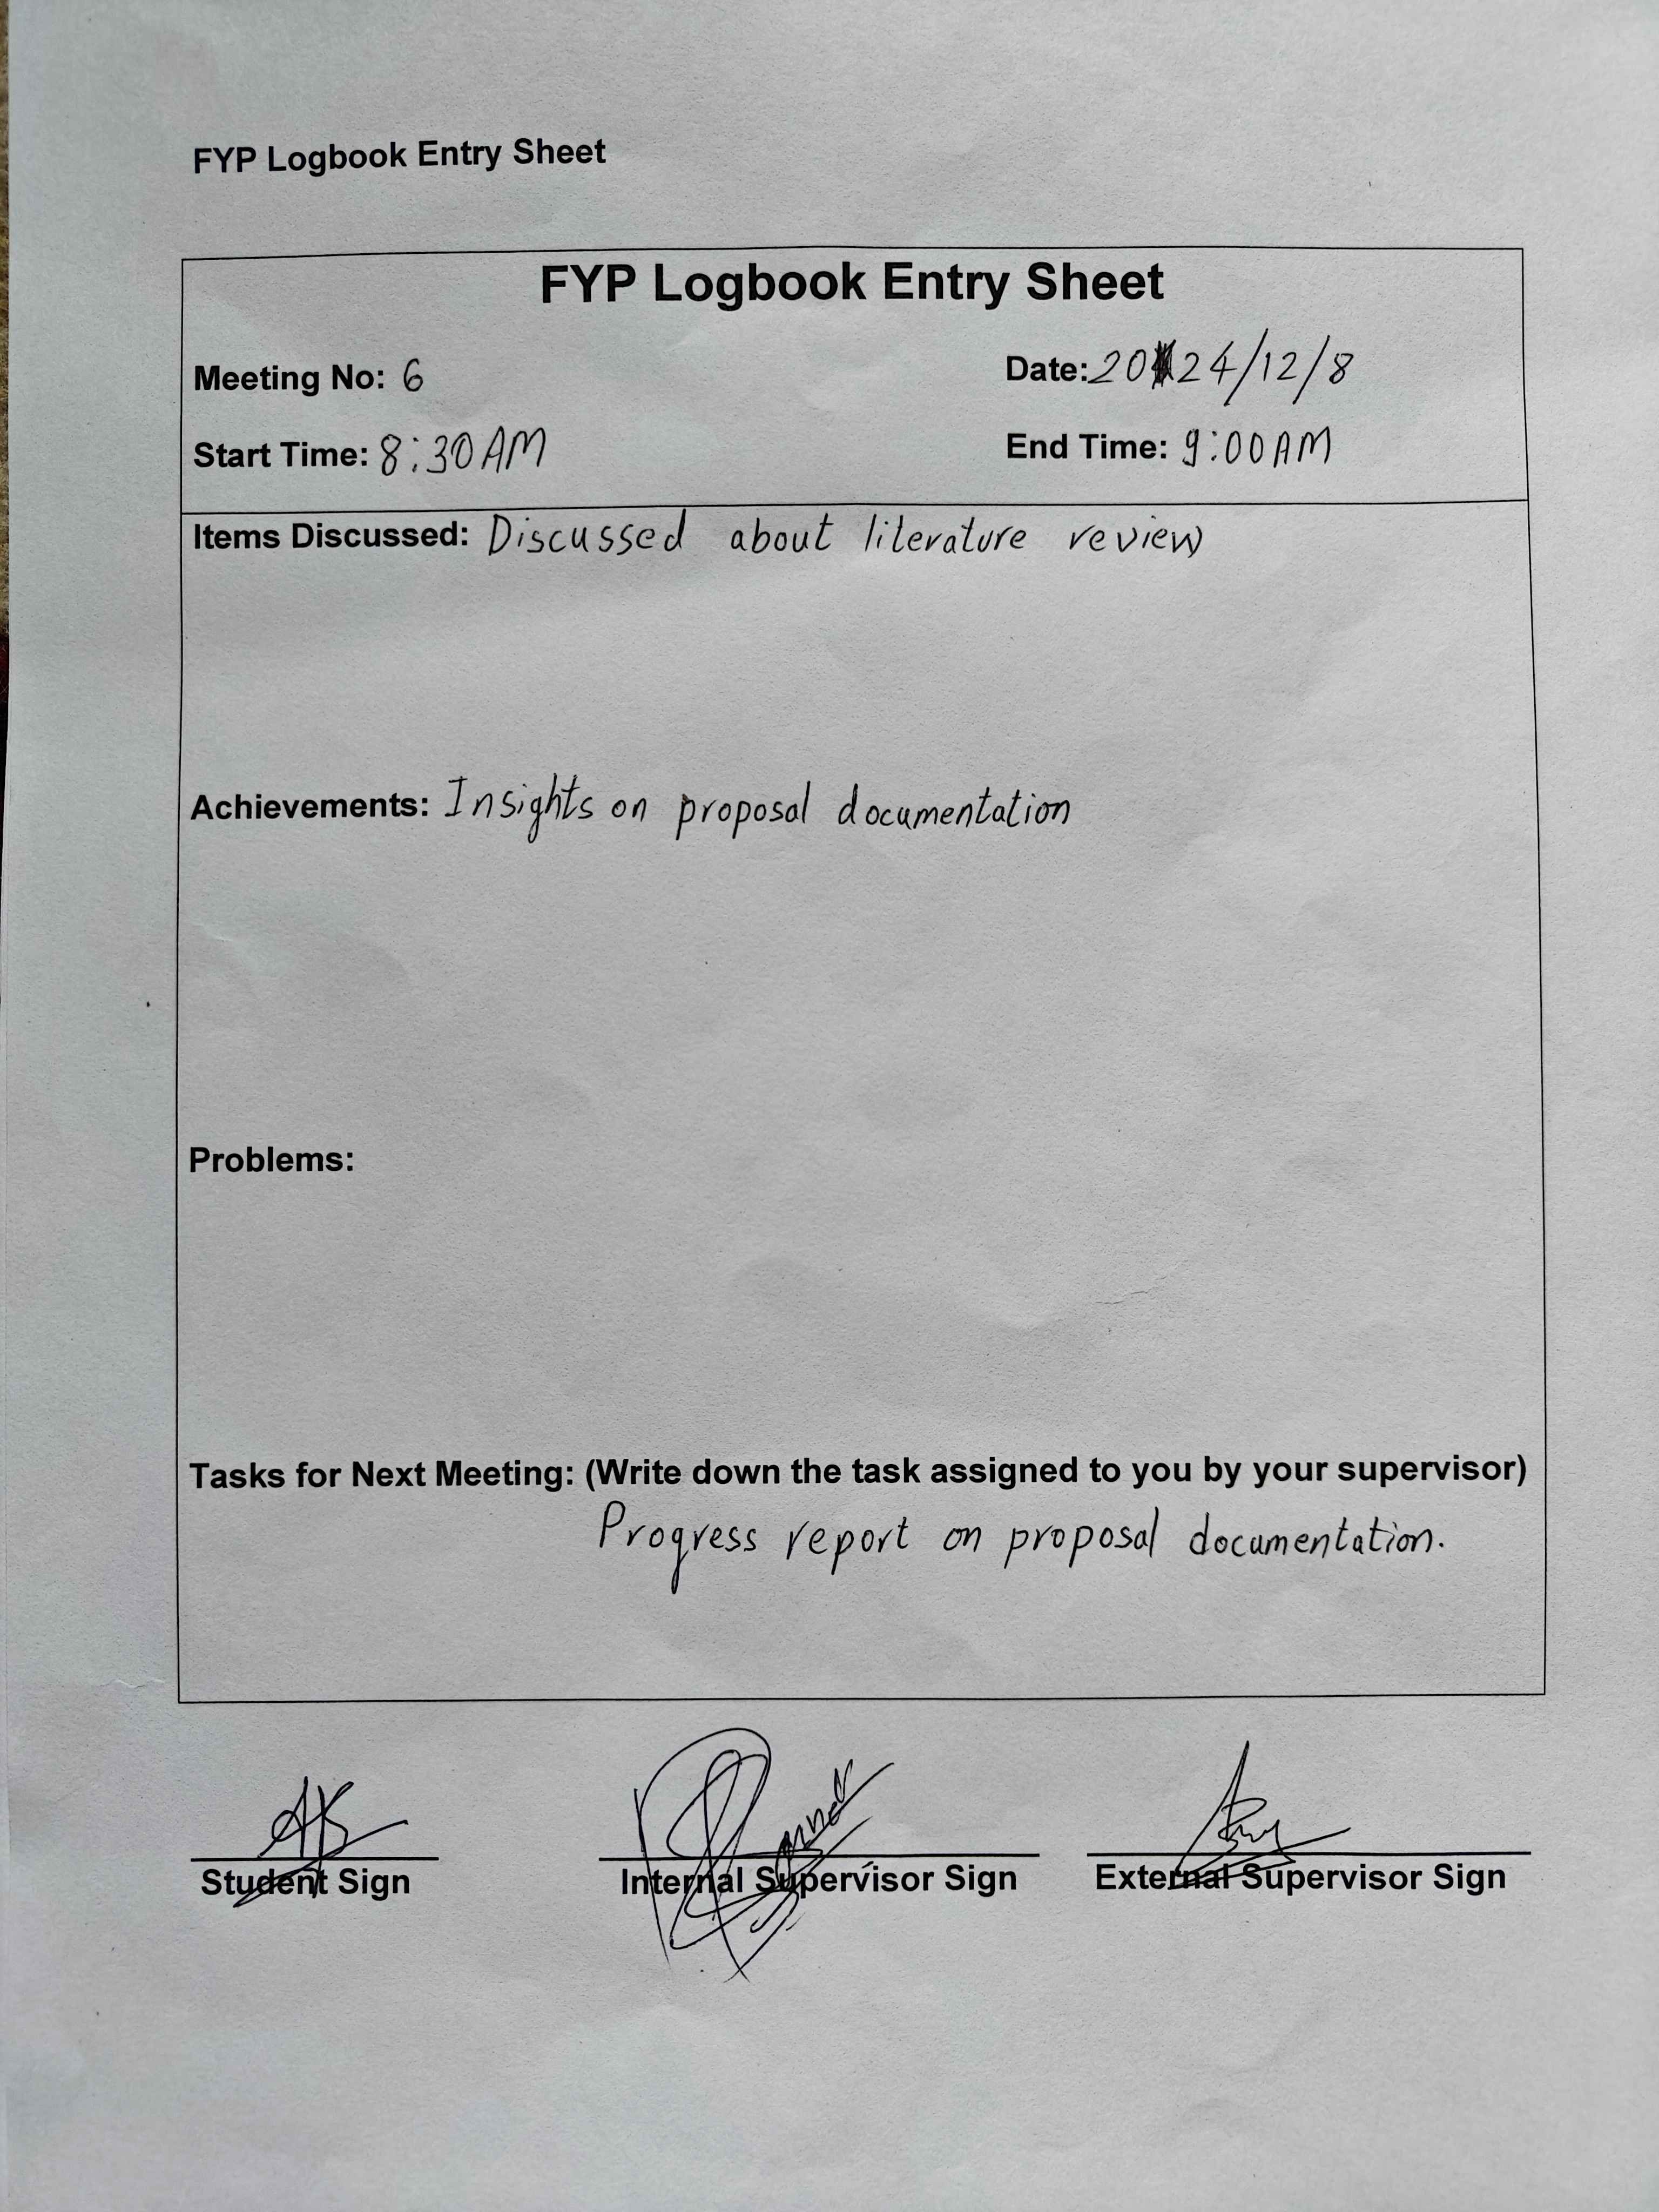 FYP Logbook Entry Sheet
FYP Logbook Entry Sheet
Meeting No: 6
Date: 2024/12/8
Start Time: 8:30 AM
End Time: 9:00 AM
Items Discussed: Discussed about literature review
Achievements: Insights on proposal documentation
Problems:
Tasks for Next Meeting: (Write down the task assigned to you by your supervisor)
Progress report on proposal documentation.
Student Sign
Internal Supervisor Sign
External Supervisor Sign